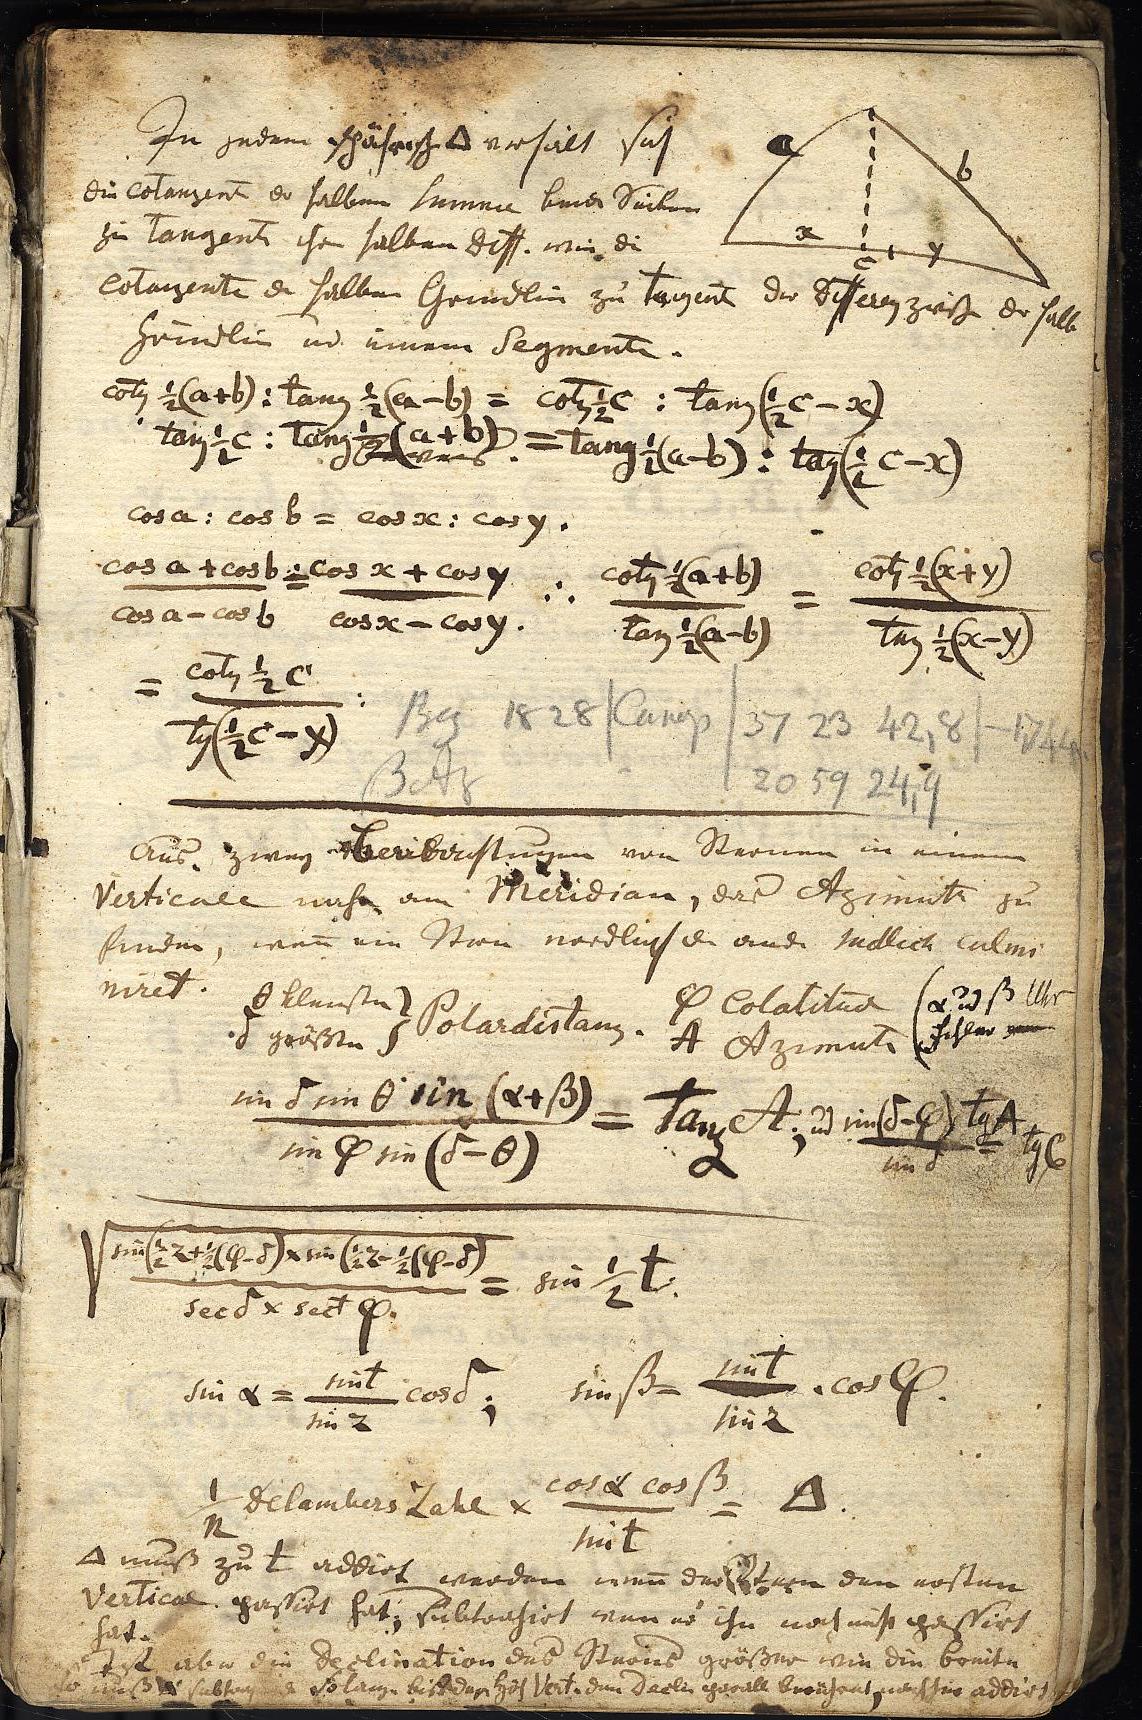 In jedem sphärisch Δ verhält sich
a
b
x
y
c
die cotangent der halben Summe beider Seiten
zu Tangent ihr halben Diff. wie die
cotangente der halben Grundlin zu Tangent der Differenz zwisch der halb
Grundlin und einem Segmente.
cotg ½(a+b) : tang ½(a−b) = cotg ½c : tang(½c−x)
tang ½c : Tang ½(a+b) = tang ½(a−b) : tag(½c−x)
cos a : cos b = cos x : cos y.
cos a + cos b / cos a − cos b = cos x + cos y / cos x − cos y. ∴ cotg ½(a+b) / tan ½(a−b) = cotg ½(x+y) / tang ½(x−y)
= cotg ½c / tg(½c−y) :
1828 | 37 23 42,8
20 59 24,9
Aus zwey von Sternen in einem
Verticale nahe am Meridian, das Azimuth zu
finden, wenn ein Stern nordlich der ande sudlich culmi
niret.
θ kleinsten } Polardistanz. φ Colatitud (α und β Uhr
δ größten } A Azimuth fehler
sin δ sin θ sin (α+β) / sin φ sin (δ−θ) = Tang A; und sin(δ−φ) tg A / sin δ = tg C
√ sin(½z+½(φ−δ) × sin(½z−½(φ−δ) / sec δ × sect φ. = sin ½ t.
sin α = sin t / sin z cos δ; sin β = sin t / sin z . cos φ.
1/n Delambers Zahl × cos α cos β / sin t = Δ.
Δ muß zu t addirt werden wenn der Stern den ersten
Vertical passirt hat; subtrahirt wenn er ihn noch nicht passirt
hat.
Ist aber die Declination des Sterns größer wie die breite